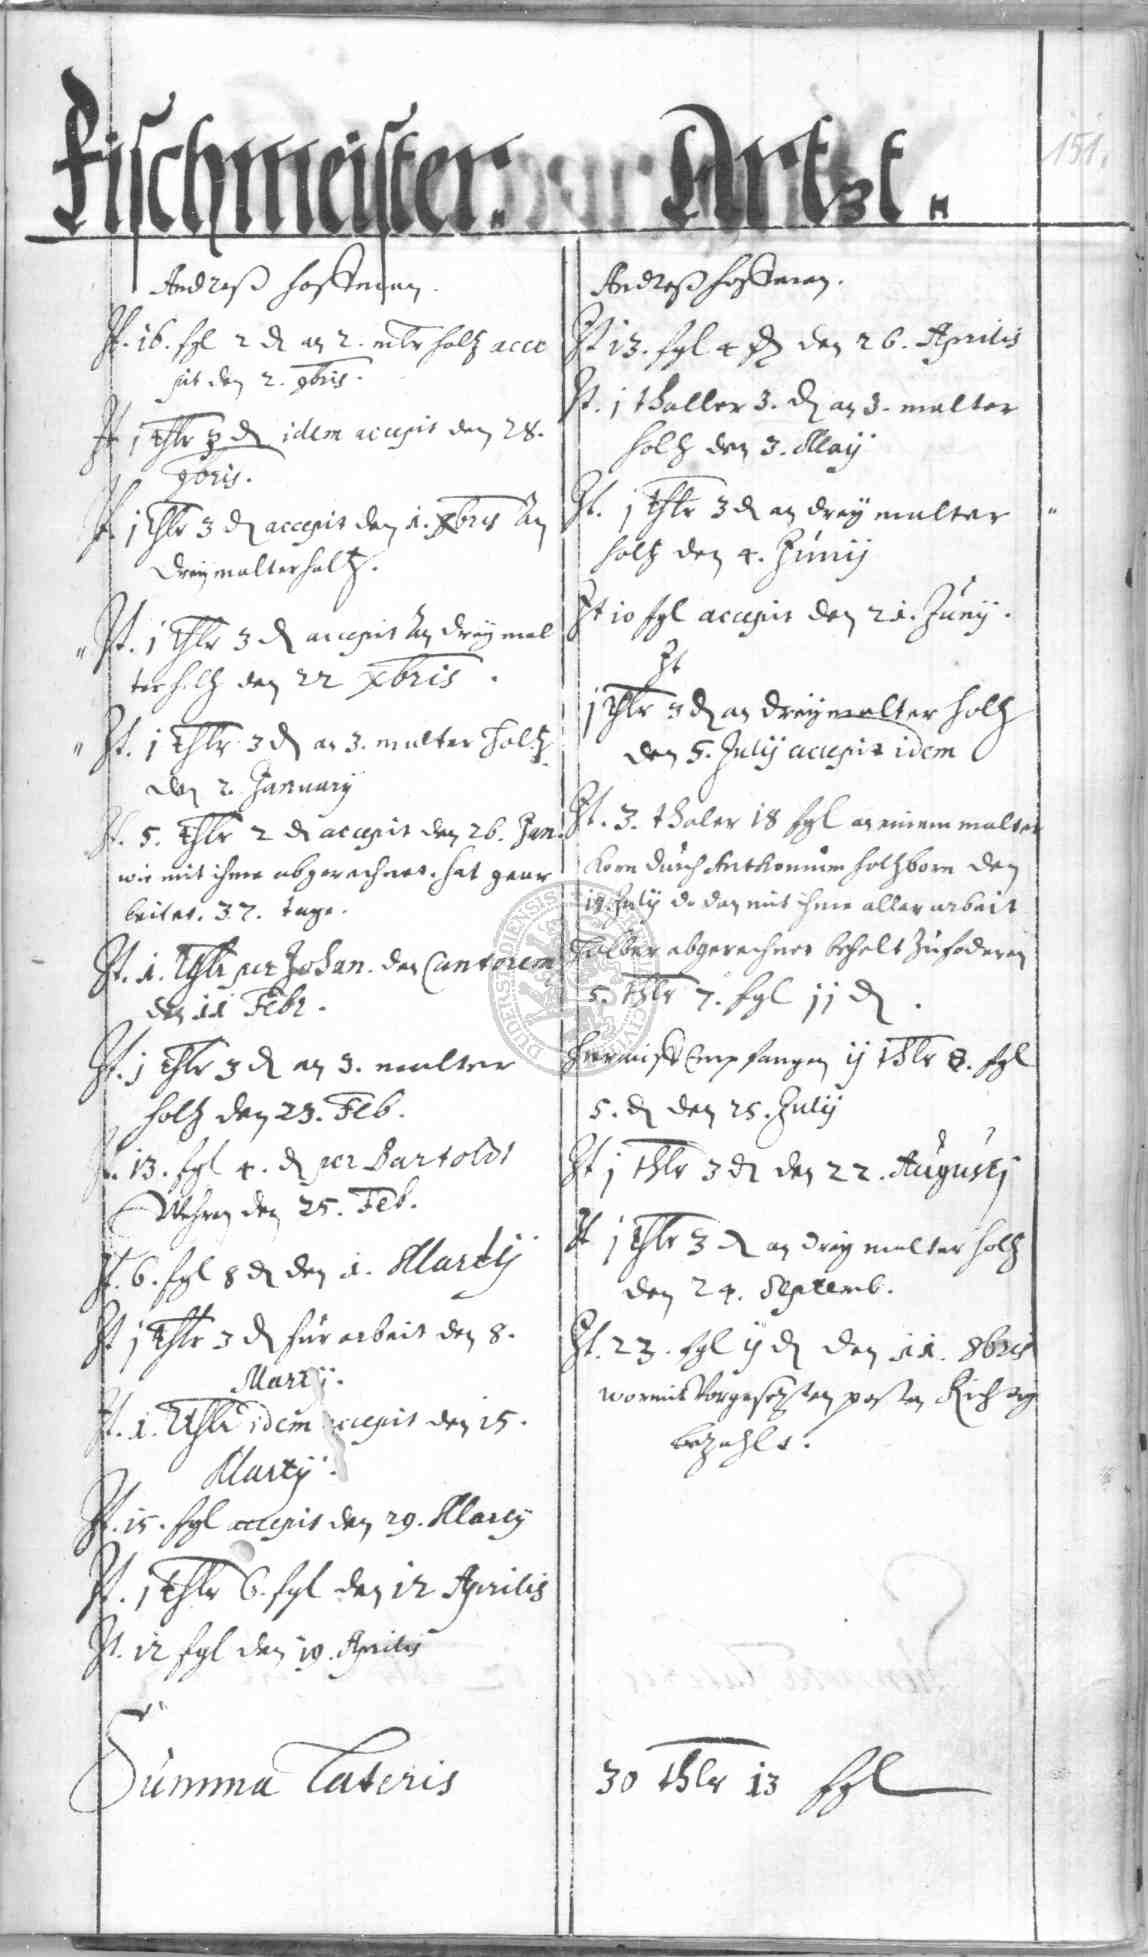 151.
Fischmeister. Artzt.
Andreß Hoffman.
It. 16. sgl 2 d an 2. mltr holtz acce
pit den 2. 9bris.
It 1 thlr 3 d idem accepit den 28.
9bris.
It. 1 thlr 3 d accepit den 1. Xbris An
drey malter holtz.
" It. 1 thlr 3 d accepit An drey mal
ter holtz den 22 Xbris.
" It. 1 thlr 3 d an 3. malter holtz
den 2. January
It. 5. thlr 2 d accepit den 26. Jan.
wie mit ihme abgerechnet. hat gear
beitet. 37. tage.
It. 1. thlr per Johan. den Cantorem
den 11 Febr.
It. 1 thlr 3 d an 3. malter
holtz den 23. Feb.
It. 13. sgl 4. d per Bartoldt
Wehren den 25. Feb.
It. 6. sgl 8 d den 1. Martij
It 1 thlr 3 d für arbeit den 8.
Martij.
It. 1. thlr idem accepit den 15.
Martij.
It. 15. sgl accepit den 29. Martij
It. 1 thlr 6. sgl den 12 Aprilis
It. 12 sgl den 19. Aprilis
Andreß Hoffman.
It 13. sgl 4 d den 26. Aprilis
It. 1 thaller 3. d an 3. malter
holtz den 3. Maij
It. 1 thlr 3 d an drey malter "
holtz den 4. Junij
It 10 sgl accepit den 21. Junij.
It
1 thlr 3 d an drey malter holtz
den 5. Julij accepit idem
It. 3. thaler 18 sgl an einem malter
korn durch Anthonium holtzborn den
19. Julij do dan mit ihme aller arbeit
halber abgerechnet behelt zufoderen
5. thlr 7. sgl 11 d.
hermist Empfangen ij thlr 8. sgl
5. d den 25. Julij
It 1 thlr 3 d den 22. Augusti
It 1 thlr 3 d an drey malter holtz
den 24. Septemb.
It. 23. sgl ij d den 11. 8bris
wormit Vorgesetzten posten Richtig
bezahlt.
Summa Lateris 30 thlr 13 sgl
DUDERSTADIENSIS